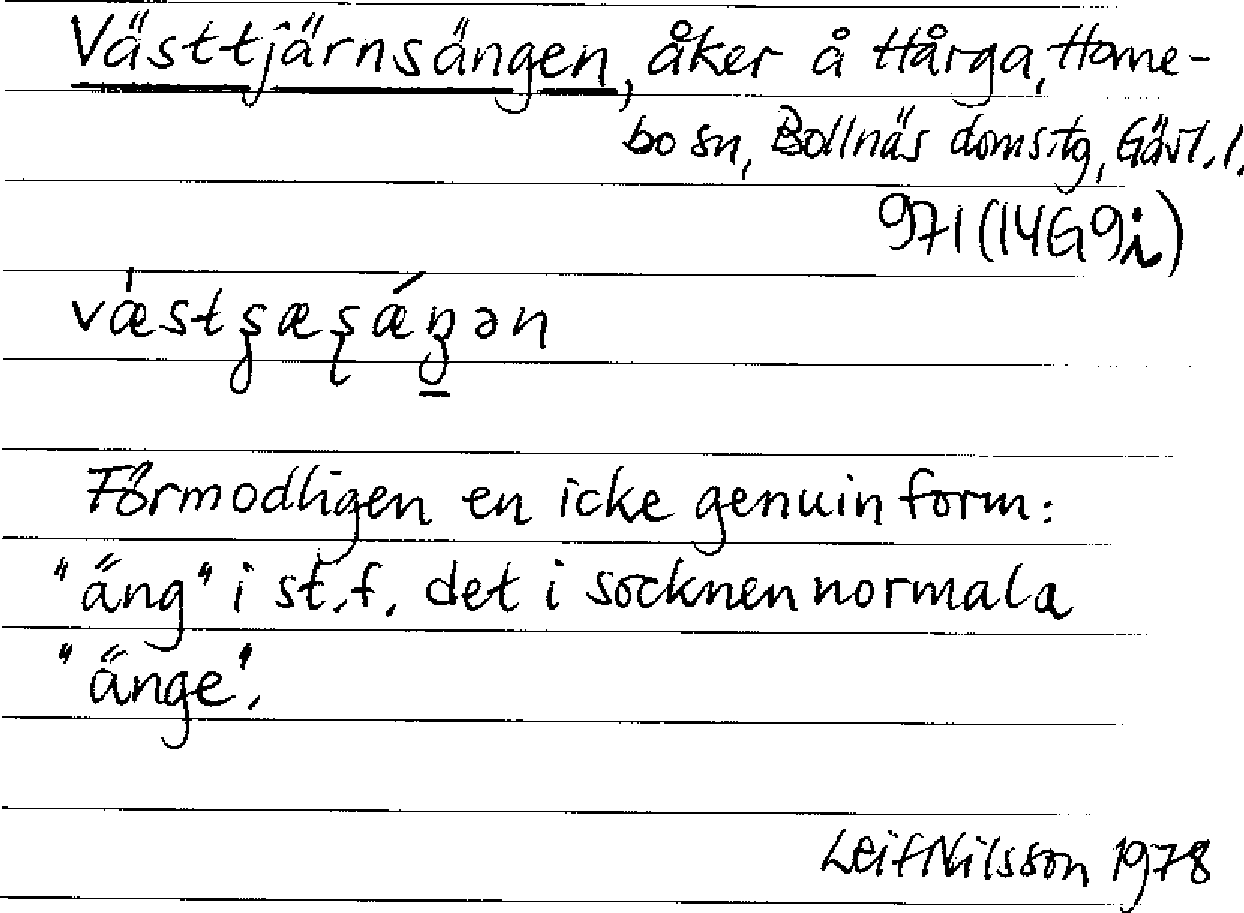 Västtjärnsängen, åker å Hårga, Hane-
bo sn, Bollnäs domsitg, Gävl. l.
971 (14G9i)
Förmodligen en icke genuin form:
"äng" i st.f. det i socknen normala
"änge".
Leif Nilsson 1978